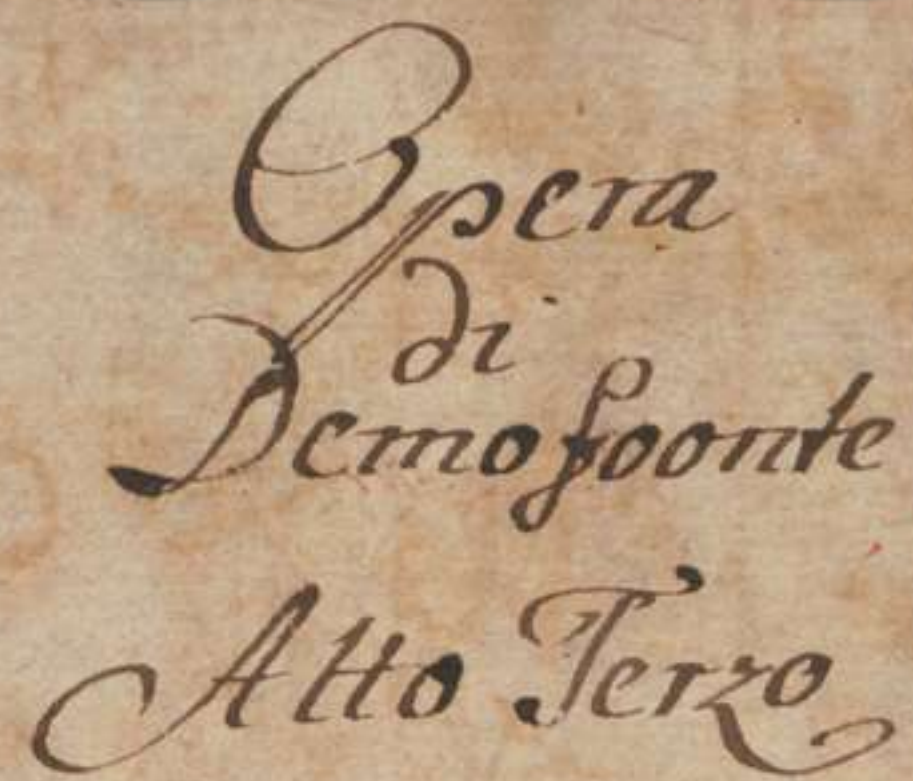 Opera
di
Demofoonte
Atto Terzo